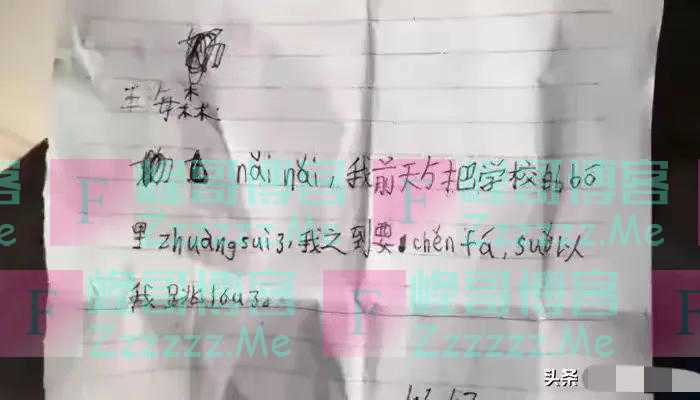 nǎi nǎi, 我前天与把学校的bō
里zhuàng suì了,我之到要chěn fá, suǒ以
我跳lóu了。
F 峰哥博客
Zzzzzz.Me
F 峰哥博客
Zzzzzz.Me
头条